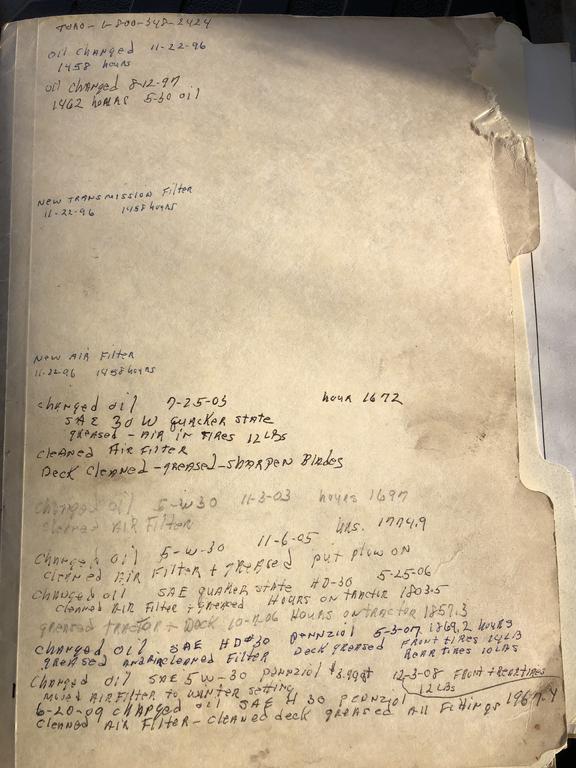 TORO - 1-800-348-2424
oil changed 11-22-96
1458 hours
oil changed 8-12-97
1462 hours 5-30 oil
New TRANSMISSION Filter
11-22-96 1458 hours
New AIR Filter
11-22-96 1458 hours
changed oil 7-25-03 hour 1672
SAE 30 W quacker state
greased - AIR in tires 12 LBS
cleaned Air Filter
Deck Cleaned - greased - sharpen Blades
changed oil 5-W30 11-3-03 hours 1697
cleaned AIR Filter
changed oil 5-W-30 11-6-05 hrs. 1774.9
cleaned AIR Filter + greased put plow on
changed oil SAE quaker state HD-30 5-25-06
cleaned AIR Filter + greased Hours on tractor 1803.5
greased tractor + Deck 10-7-06 Hours on tractor 1857.3
changed oil SAE HD#30 pennziol 5-3-07 1869.2 hours
greased and cleaned Filter Deck greased Front tires 14 LB
Rear tires 10 LBS
changed oil SAE 5W-30 pennziol $3.99qt 12-3-08 Front + Rear tires
12 LBS
moved AIR Filter to winter setting
6-20-09 changed oil SAE H 30 pennziol
cleaned AIR Filter - cleaned deck greased All Fittings 1967.4